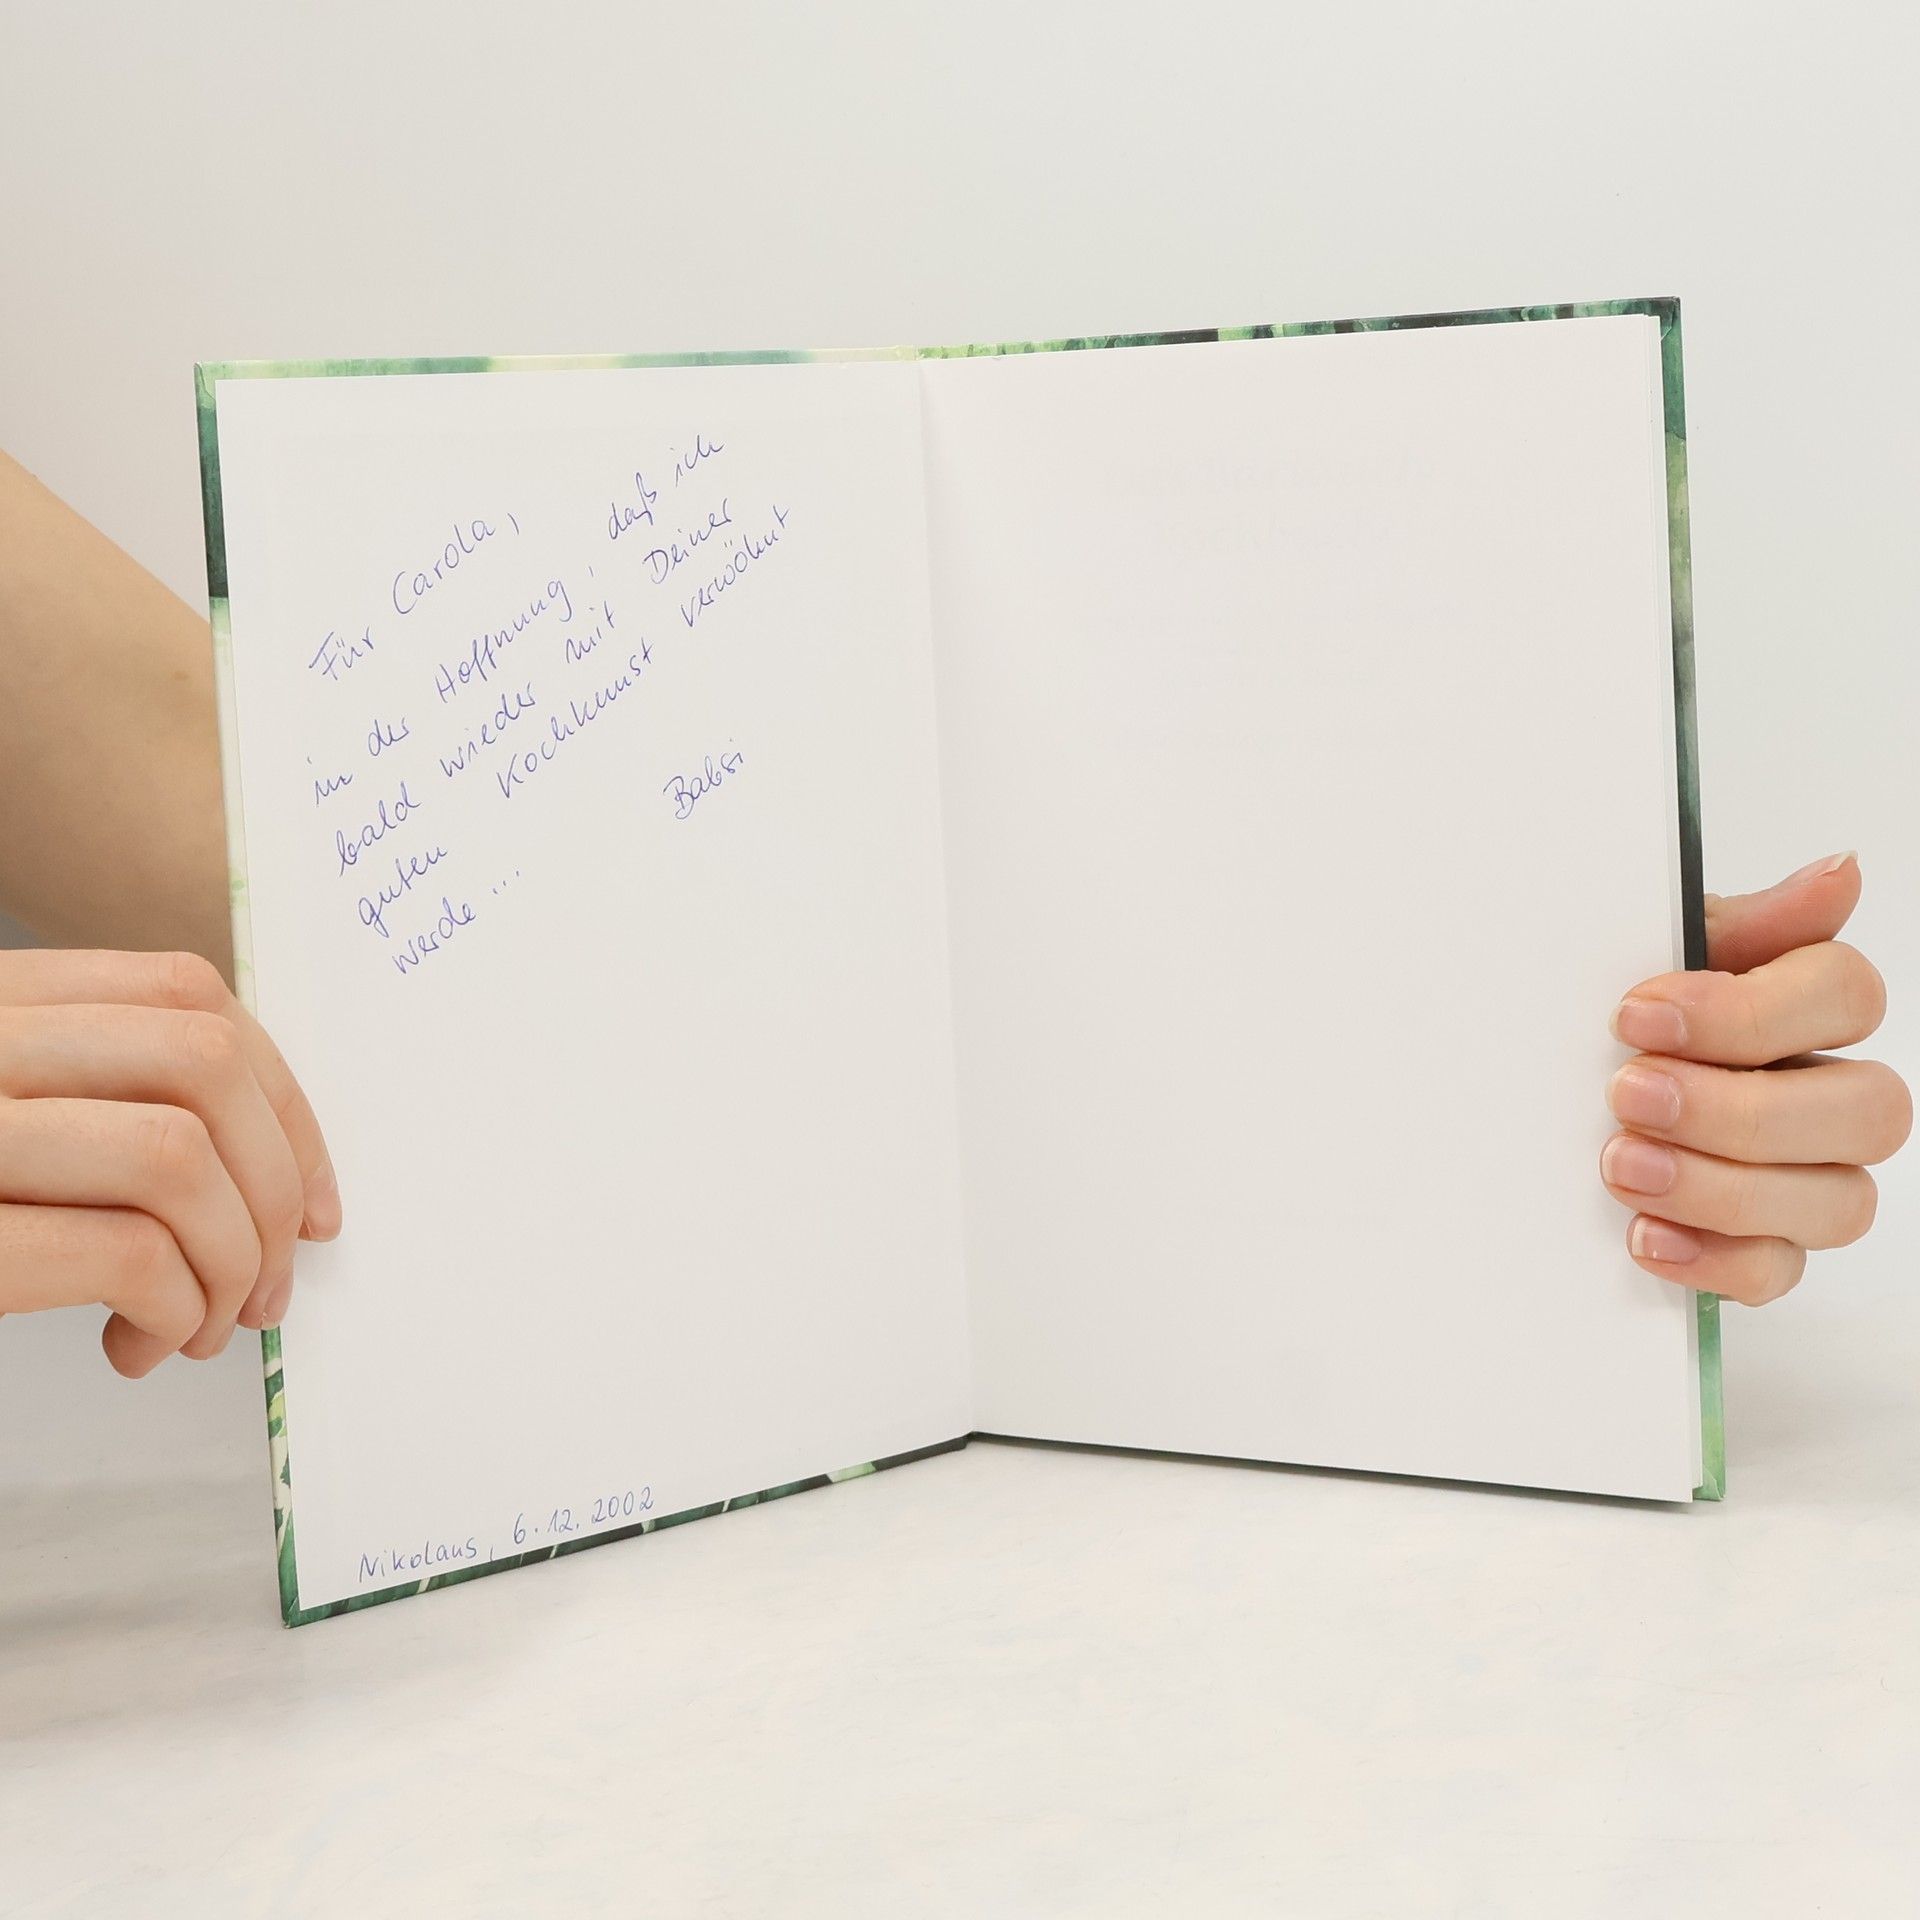 Für Carola,
in der Hoffnung, daß ich
bald wieder mit Deiner
guten Kochkunst verwöhnt
werde ...
Babsi
Nikolaus, 6.12.2002